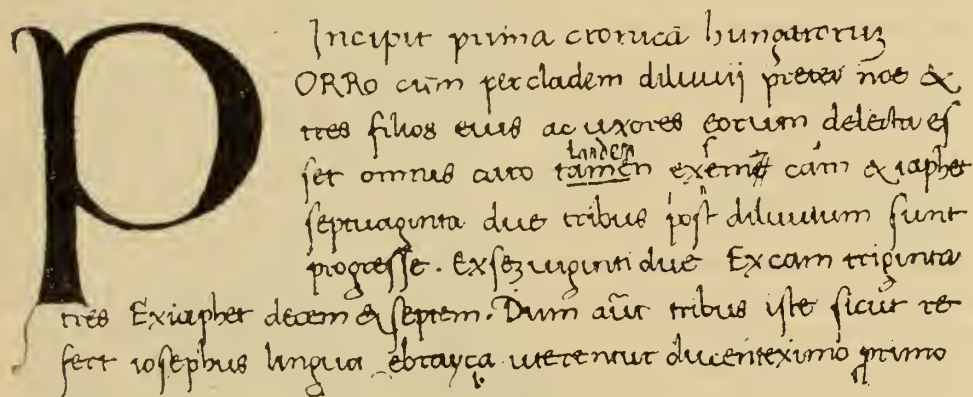 Incipit prima cronica hungaroruz
PORRO cum per cladem diluuij preter noe &
tres filios eius ac uxores eorum deleta es
set omnis caro tamen tandem ex sem cam & iaphet
septuaginta due tribus post diluuium sunt
progresse. Ex sez uiginti due Ex cam triginta
tres Ex iaphet decem & septem. Dum aut tribus iste sicut re
fert iosephus lingua ebrayca uterentur ducenteximo primo